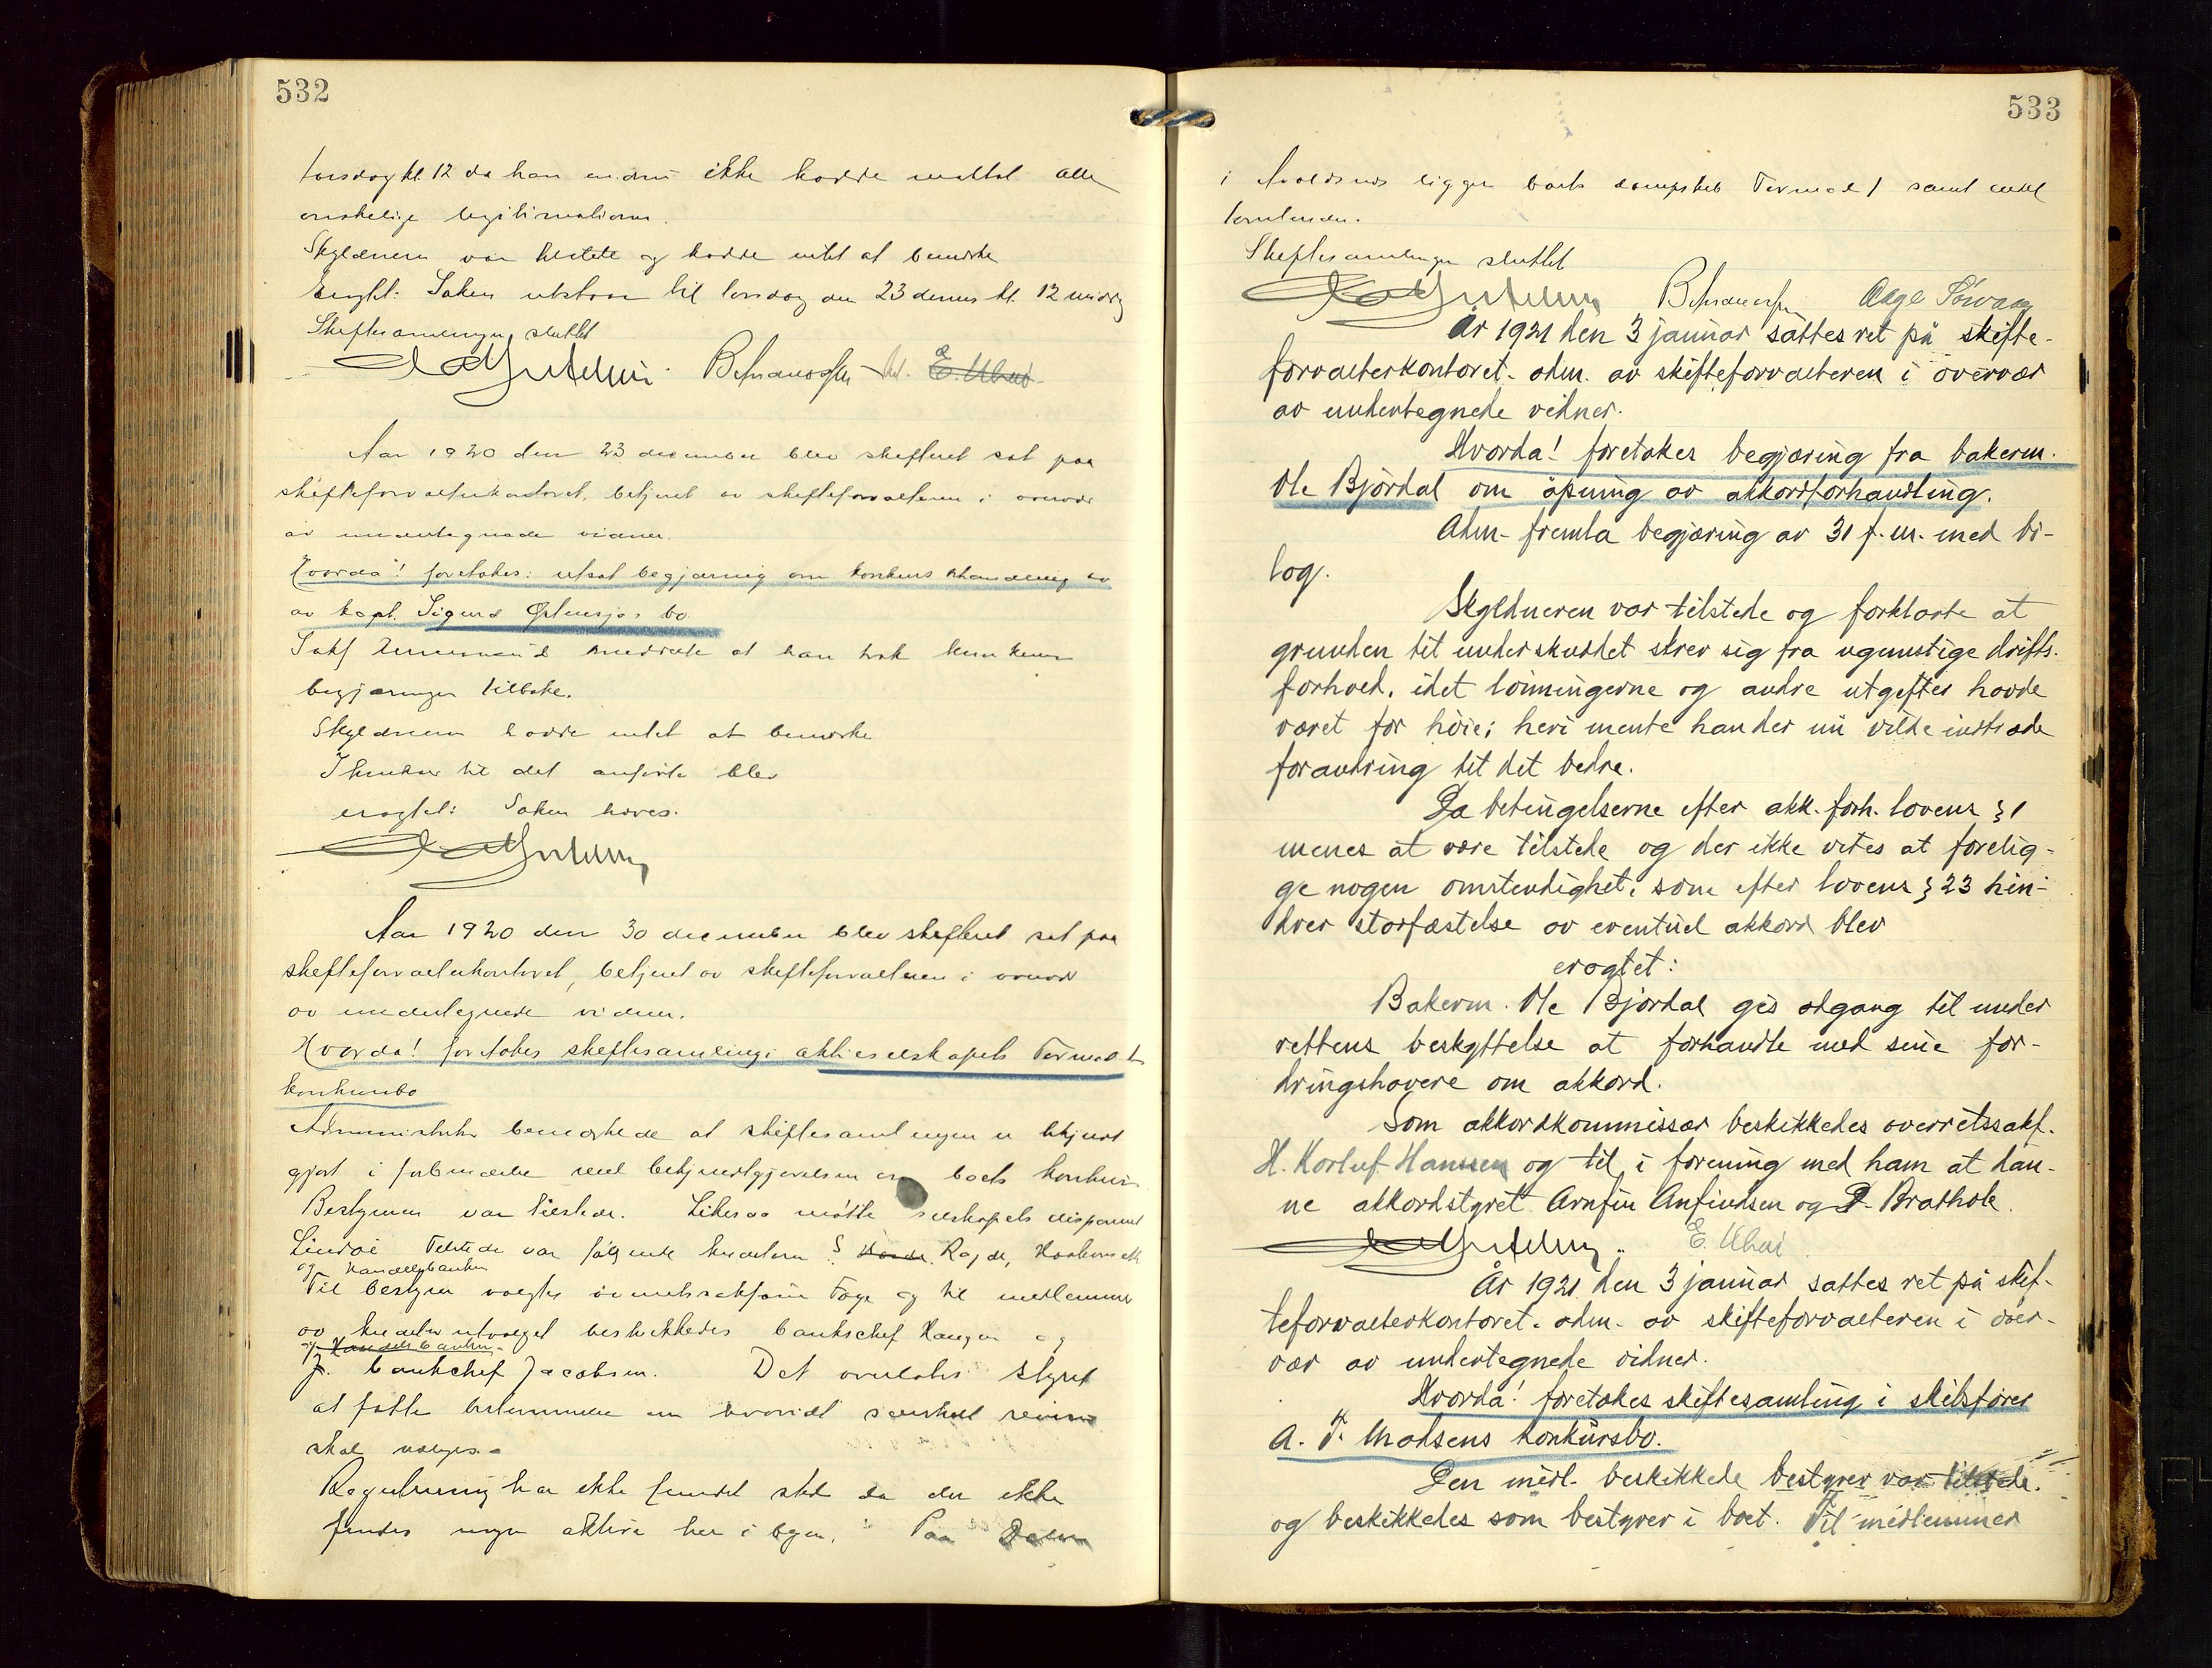 532
torsdag kl. 12 da han endnu ikke hadde mottat alle
ønskelige legitimationer.
Skyldneren var tilstede og hadde intet at bemerke
Eragtet: Saken utstaar til torsdag den 23 dennes kl. 12 middag
Skiftesamlingen sluttet
E. Ubø
Aar 1920 den 23 december blev skifteret sat paa
skifteforvalterkontoret, betjent av skifteforvalteren i overvær
av undertegnede vidner.
Hvorda! foretokes: utsat begjæring om konkursbehandling av
av kapt. Sigurd Østensjøs bo.
Sakf. meddelte at han tok konkurs
begjæringen tilbake.
Skyldneren hadde intet at bemerke
I henhold til det anførte blev
eragtet: Saken hæves.
Aar 1920 den 30 december blev skifteret sat paa
skifteforvalterkontoret, betjent av skifteforvalteren i overvær
av undertegnede vidner.
Hvorda! foretokes skiftesamling i aktieselskapet Tormod I
konkursbo
Administrator bemerkede at skiftesamlingen er bekjent
gjort i forbindelse med bekjendtgjørelsen om boets konkurs
Bestyreren var tilstede. Likesaa møtte selskapets disponent
Lindøe Tilstede var følgende kreditorer S. Røgde,
og Handelsbanken
Til bestyrer valgtes overretssakfører Fage og til medlemmer
av kreditorutvalget beskikkedes banksjef Haugen og
og Handelsbanken
J. bankchef Jacobsen. Det overlates styret
at fatte bestemmelse om hvorvidt særskilt revisor
skal vælges.
Registrering har ikke fundet sted da der ikke
findes nogen aktiva her i byen. Paa
533
i ligger boets dampskib Tormod I samt endel
tomtønder.
Skiftesamlingen sluttet
Aage
År 1921 den 3 januar sattes ret på skifte-
forvalterkontoret. adm. av skifteforvalteren i overvær
av undertegnede vidner.
Hvorda! foretokes begjæring fra bakerm.
Ole Bjørdal om åpning av akkordforhandling.
Adm. fremla begjæring av 31 f. m. med bi-
lag.
Skyldneren var tilstede og forklarte at
grunden til underskuddet skrev sig fra ugunstige drifts-
forhold, idet lønningerne og andre utgifter havde
været for høie; heri mente han der nu vilde indtræde
forandring til det bedre.
Da betingelserne efter akk. forh. lovens § 1
menes at være tilstede og der ikke vites at forelig-
ge nogen omstendighet, som efter lovens § 23 hin-
drer stadfæstelse av eventuel akkord blev
eragtet:
Bakerm. Ole Bjørdal gis adgang til under
rettens beskyttelse at forhandle med sine for-
dringshavere om akkord.
Som akkordkommissær beskikkedes overretssakf.
H. Korluf Hanssen og til, i forening med ham at dan-
ne akkordstyret Arnfin Anfindsen og P. Brathole.
E. Ubø
År 1921 den 3 januar sattes ret på skif-
teforvalterkontoret. adm. av skifteforvalteren i over-
vær av undertegnede vidner.
Hvorda! foretokes skiftesamling i skibsfører
A. F. Madsens konkursbo.
Den midl. beskikkede bestyrer var tilstede.
og beskikkedes som bestyrer i boet. Til medlemmer